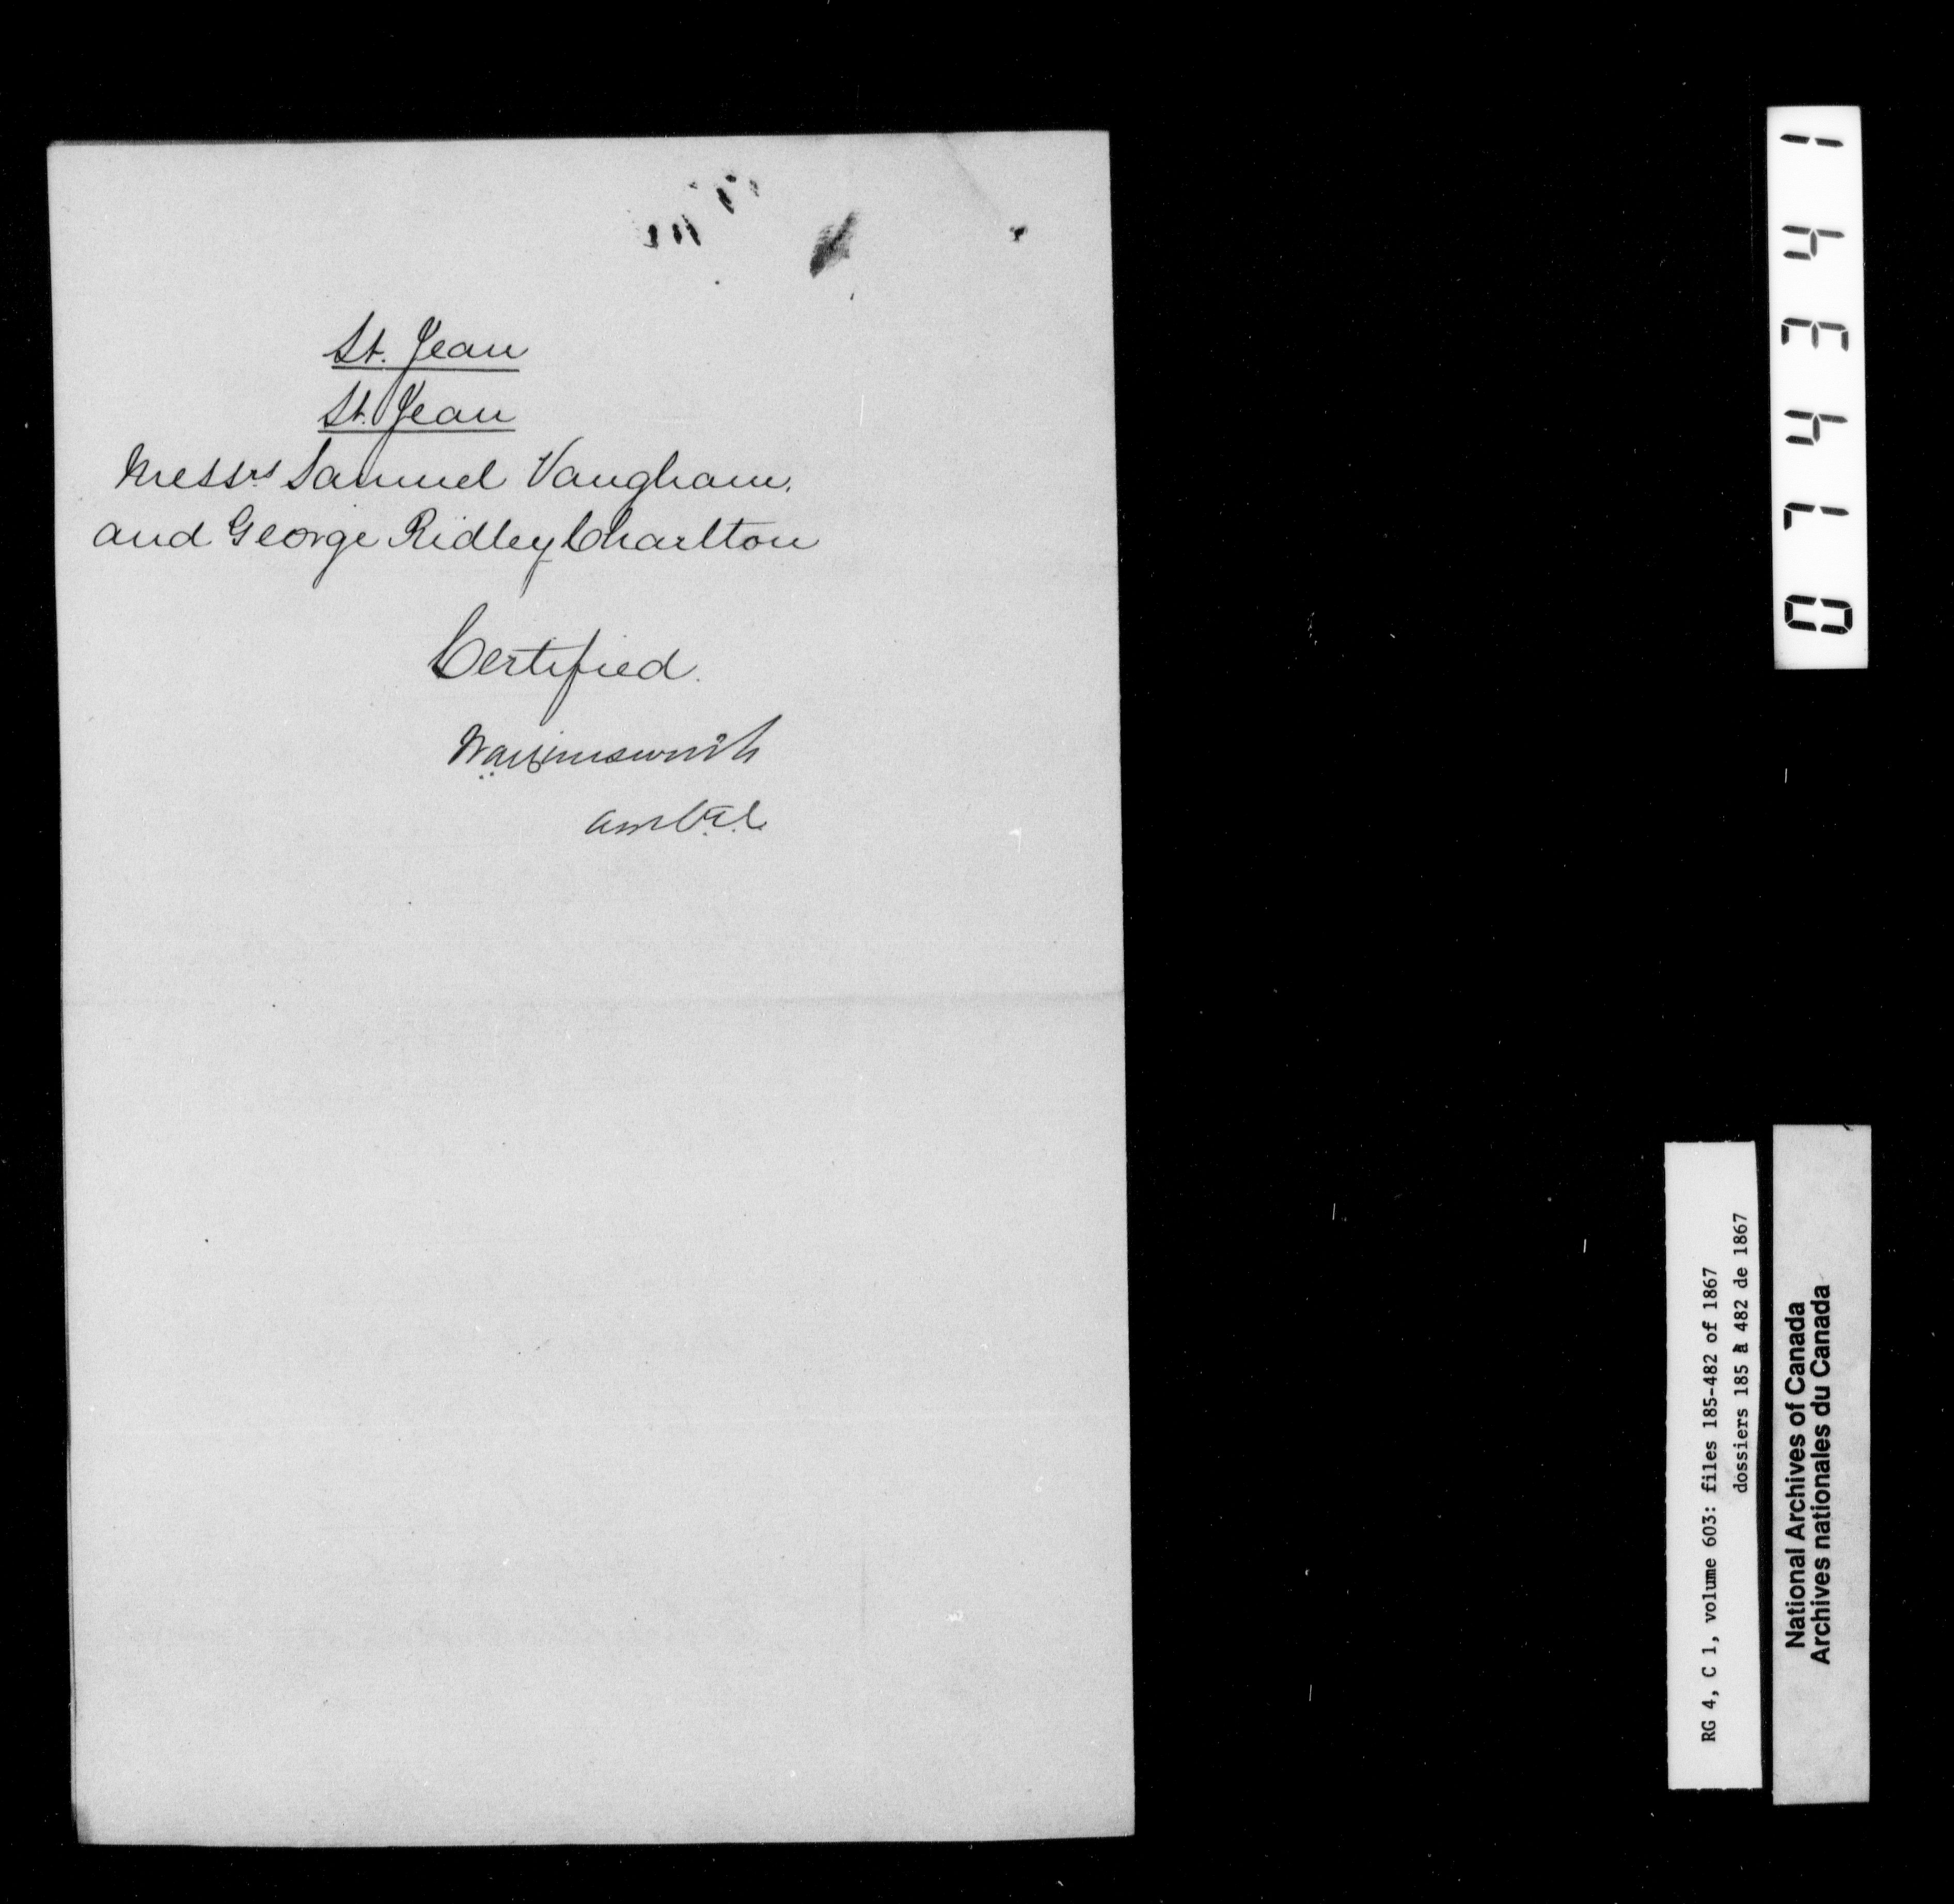 St. Jean
St. Jean
Messrs Samuel Vaugham.
and George Ridley Charlton
Certified.
014341
RG 4, C 1, volume 603: files 185-482 of 1867
dossiers 185 à 482 de 1867
National Archives of Canada
Archives nationales du Canada